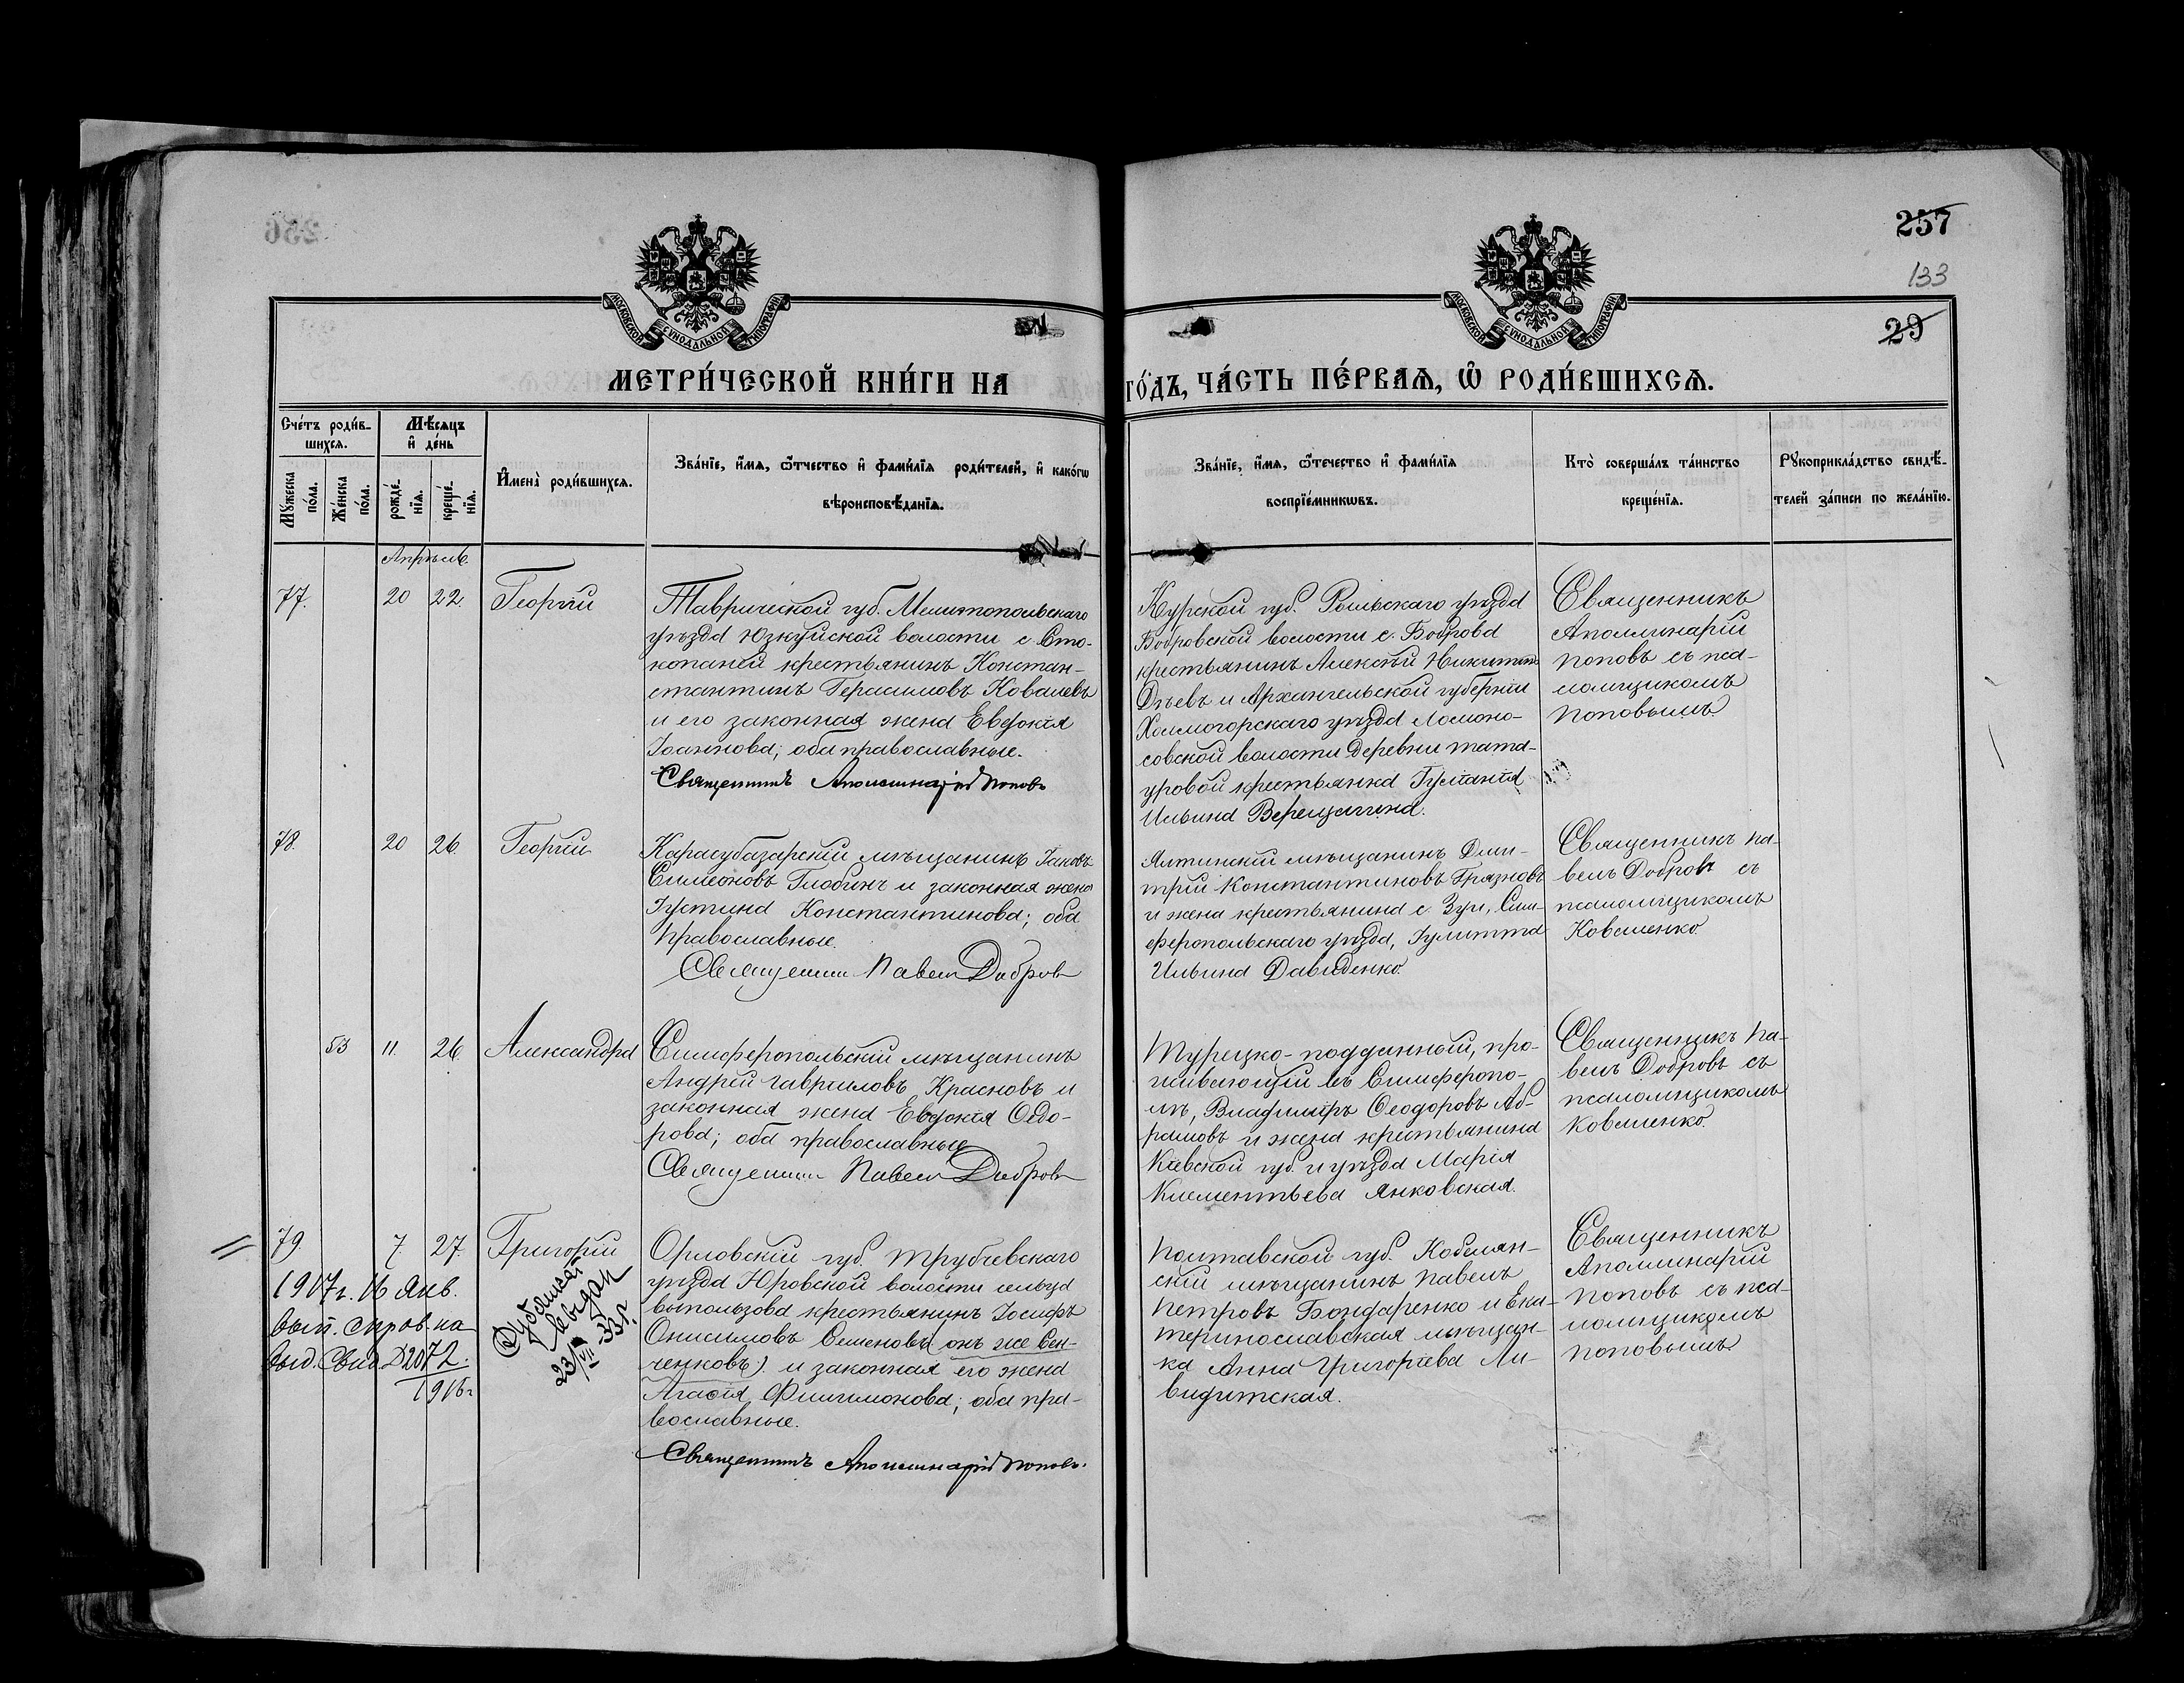 257
133
29
МОСКОВСКОЙ СѴНОДАЛЬНОЙ ТИПОГРАФІИ
МОСКОВСКОЙ СѴНОДАЛЬНОЙ ТИПОГРАФІИ
МЕТРИ́ЧЕСКОЙ КНИ́ГИ НА
ГО́ДЪ, ЧА́СТЬ ПЕ́РВАЯ, Ѽ РОДИ́ВШИХСЯ.
Сче́тъ роди́в-
шихся.
Мꙋ́жеска
по́ла.
Же́нска
по́ла.
Мѣ́сяцъ
и҆ де́нь
рожде́-
нїя.
креще́-
нїя.
И҆мена̀ роди́вшихся.
Зва́нїе, и҆́мя, ѻ҆́тчество и҆ фами́лїя роди́телей, и҆ како́гѡ
вѣроисповѣ́данїя.
Зва́нїе, и҆́мя, ѻ҆те́чество и҆ фами́лїя
воспрїе́мникѡвъ.
Кто̀ соверша́лъ та́инство
креще́нїя.
Рꙋкоприкла́дство свидѣ́-
телей за́писи по жела́нїю.
Апрѣль
77.
20
22.
Георгій
Таврической губ. Мелитопольскаго
уѣзда Юзкуйской волости с. Сто-
копаней крестьянинъ Констан-
стантинъ Герасимовъ Ковалевъ
и его законная жена Евдокія
Іоаннова; оба православные.
Священникъ Аполлинарій Поповъ
Курской губ. Рыльскаго уѣзда
Бобровской волости с. Боброва
крестьянинъ Алексѣй Никитинъ
Дѣевъ и Архангельской губерніи
Холмогорскаго уѣзда Ломоно-
совской волости деревни Тата-
уровой крестьянка Іуліанія
Ильина Верещагина.
Священникъ
Аполлинарій
Поповъ съ пса-
ломщикомъ
Поповымъ.
78.
20
26.
Георгій
Карасубазарскій мѣщанинъ Іаковъ
Симеоновъ Глобинъ и законная жена
Іустина Константинова; оба
православные.
Священник Павел Добров
Ялтинскій мѣщанинъ Дми-
трій Константиновъ Грязновъ
и жена крестьянина с. Зуи, Сим-
феропольскаго уѣзда, Іулитта
Ильина Давиденко.
Священникъ Па-
велъ Добровъ съ
псаломщикомъ
Коваленко.
53
11.
26.
Александра
Симферопольскій мѣщанинъ
Андрей Гавриловъ Красновъ и
законная жена Евдокія Ѳедо-
рова; оба православные
Священник Павел Добров
Турецко-подданный, про-
живающій въ Симферопо-
лѣ, Владиміръ Ѳеодоровъ Аб-
рамовъ и жена крестьянина
Кіевской губ. и уѣзда Марія
Климентьева Янковская.
Священникъ Па-
велъ Добровъ съ
псаломщикомъ
Коваленко.
79.
7.
27.
Григорій
1917г. 16 Янв.
вып. спров. на
выд. Свид. № 2072.
1916г
Дубликат
выдан
23/VII 33г.
Орловскій губ. Трубчевскаго
уѣзда Юровской волости сельца
Выползова крестьянинъ Іосифъ
Онисимовъ Семеновъ (онъ же Сен-
ченковъ) и законная его жена
Агаѳія Филимонова; оба пра-
вославные.
Священникъ Аполлинарій Поповъ.
Полтавской губ. Кобелян-
скій мѣщанинъ Павелъ
Петровъ Бондаренко и Ека-
теринославская мѣщан-
ка Анна Григоріева Ли-
видитская.
Священникъ
Аполлинарій
Поповъ съ пса-
ломщикомъ
Поповымъ.